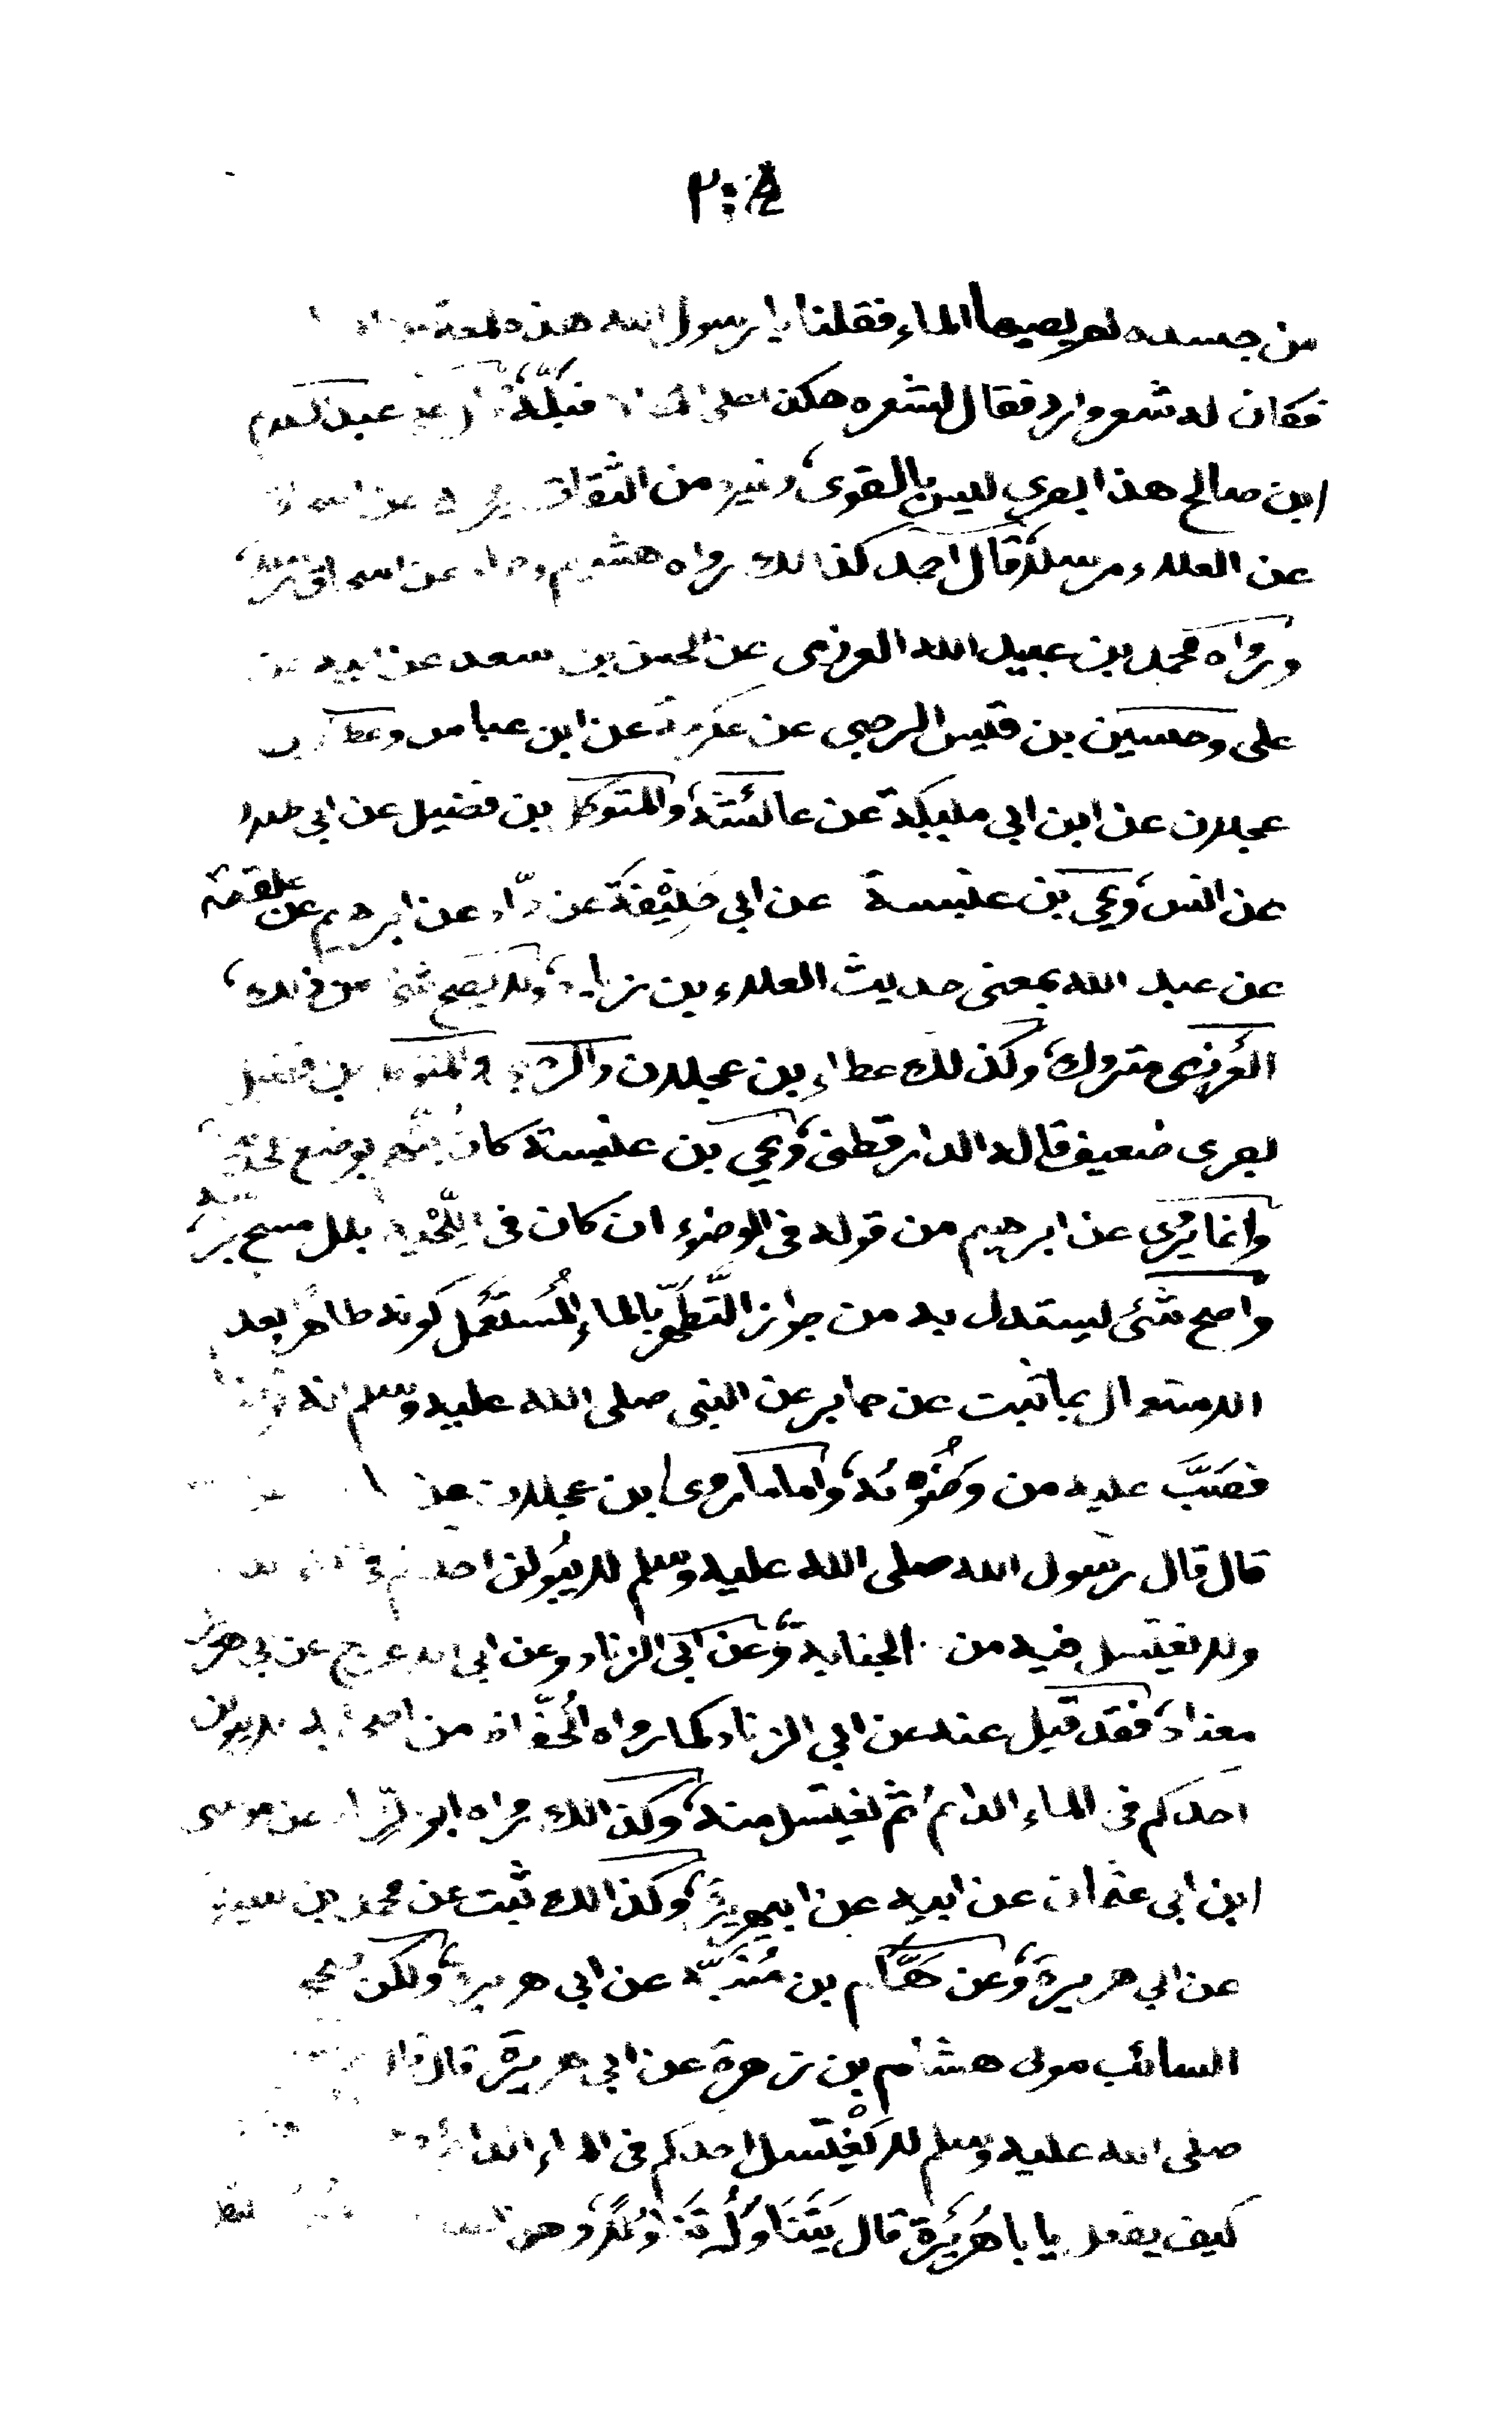 من جسده لم يصبها الماء فقلنا يا رسول الله هذه لمعة
فكان له شعر وارد فقال بشعره هكذا على فبلّه عبد السلام
ابن صالح هذا بصري ليس بالقوى وغيره من الثقات يرويه عن اسحاق
عن العلاء مرسلا قال احمد كذالك رواه هشيم وحماد عن اسحاق
ورواه محمد بن عبيد الله العرزمى عن الحسن بن سعد عن ابيه عن
على وحسين بن قيس الرحبي عن عكرمة عن ابن عباس وعطا بن
عجلان عن ابن ابي مليكة عن عائشة والمتوكل بن فضيل عن ابي ظلال
عن انس ويحي بن عنبسة عن ابي حنيفة عن حمّاد عن ابرهيم عن علقمة
عن عبد الله بمعنى حديث العلاء بن زياد ولا يصح شئ من ذلك
العرزمى متروك وكذلك عطاء بن عجلان والرحبي والمتوكل بن فضيل
بصرى ضعيف قاله الدارقطنى ويحي بن عنبسة كان يتهم بوضع الحديث
وانما يروى عن ابرهيم من قوله فى الوضوء ان كان فى اللّحْية بلل مسح
واصح شئ ليستدل به من جواز التّطهّر بالماء المُستَعمَل كونه طاهرا بعد
الاستعمال بما ثبت عن جابر عن النبى صلى الله عليه وسلم انه
فصَبَّ عليه من وَضُوئه واما ما روى ابن عجلان عن
قال قال رسول الله صلى الله عليه وسلم لا يبولن احدكم فى
ولا يغتسل فيه من الجنابة وعن ابى الزناد وعن ابى الاعرج عن ابى هريرة
معناه فقد قيل عنه عن ابي الزناد كما رواه الحُفّاظ من اصحابه لا يبولن
احدكم فى الماء الدائم ثم يغتسل منه وكذالك رواه ابو الزناد عن موسى
ابن ابى عثمان عن ابيه عن ابيهريرة وكذالك ثبت عن محمد بن سيرين
عن ابي هريرة وعن هَمَّام بن مُنَبِّه عن ابى هريرة ولكن
السائب مولى هشام بن زهرة عن ابي هريرة قال قال
صلى الله عليه وسلم لا يَغْتسل احدكم فى الماء الدائم
كيف يفعل يا با هُرَيْرَة قال يَتَنَاوَلُه تَنَاوُلًا وهو